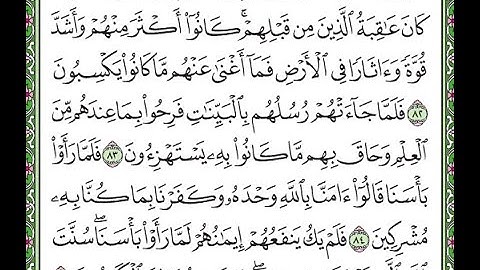 كَانَ عَٰقِبَةُ ٱلَّذِينَ مِن قَبْلِهِمْ ۚ كَانُوٓا۟ أَكْثَرَ مِنْهُمْ وَأَشَدَّ
قُوَّةً وَءَاثَارًا فِى ٱلْأَرْضِ فَمَآ أَغْنَىٰ عَنْهُم مَّا كَانُوا۟ يَكْسِبُونَ
٨٢ فَلَمَّا جَآءَتْهُمْ رُسُلُهُم بِٱلْبَيِّنَٰتِ فَرِحُوا۟ بِمَا عِندَهُم مِّنَ
ٱلْعِلْمِ وَحَاقَ بِهِم مَّا كَانُوا۟ بِهِۦ يَسْتَهْزِءُونَ ٨٣ فَلَمَّا رَأَوْا۟
بَأْسَنَا قَالُوٓا۟ ءَامَنَّا بِٱللَّهِ وَحْدَهُۥ وَكَفَرْنَا بِمَا كُنَّا بِهِۦ
مُشْرِكِينَ ٨٤ فَلَمْ يَكُ يَنفَعُهُمْ إِيمَٰنُهُمْ لَمَّا رَأَوْا۟ بَأْسَنَا ۖ سُنَّتَ